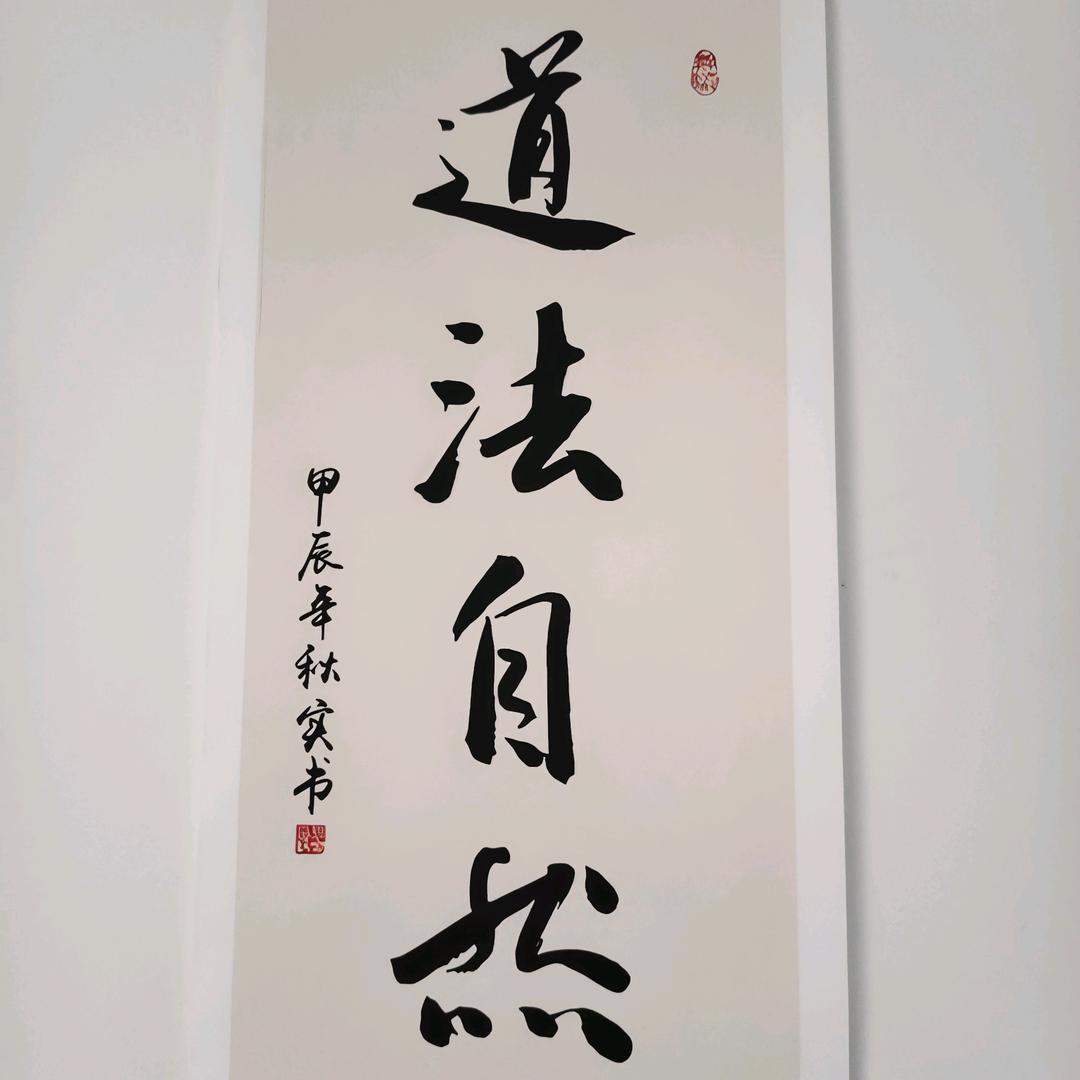 道法自然
甲辰年秋实书